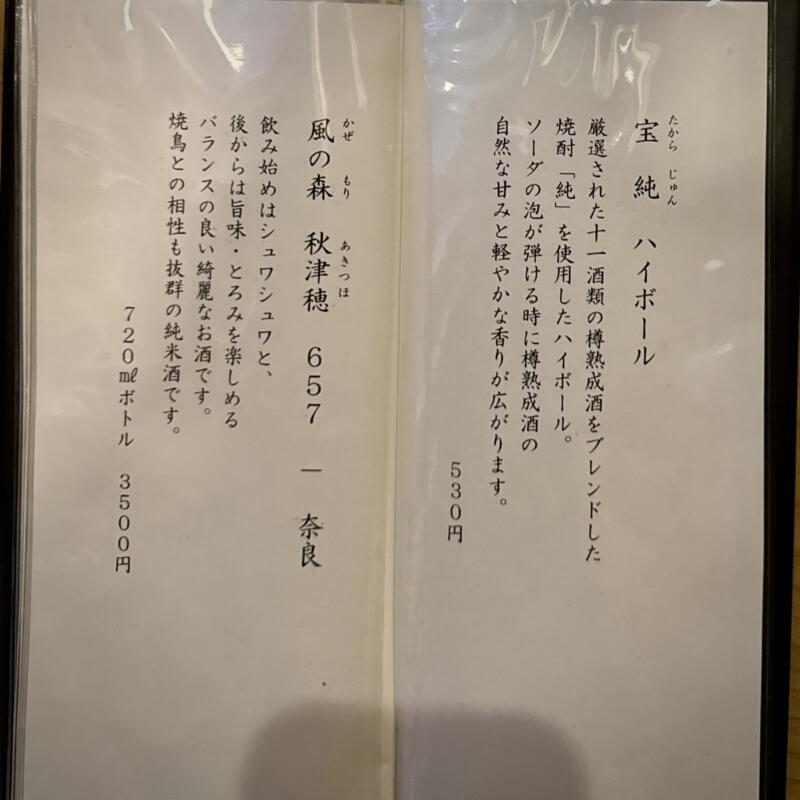 宝 純 ハイボール
たから じゅん
厳選された十一酒類の樽熟成酒をブレンドした
焼酎「純」を使用したハイボール。
ソーダの泡が弾ける時に樽熟成酒の
自然な甘みと軽やかな香りが広がります。
530円
風の森 秋津穂 657 ― 奈良
かぜ もり あきつほ
飲み始めはシュワシュワと、
後からは旨味・とろみを楽しめる
バランスの良い綺麗なお酒です。
焼鳥との相性も抜群の純米酒です。
720㎖ボトル 3500円